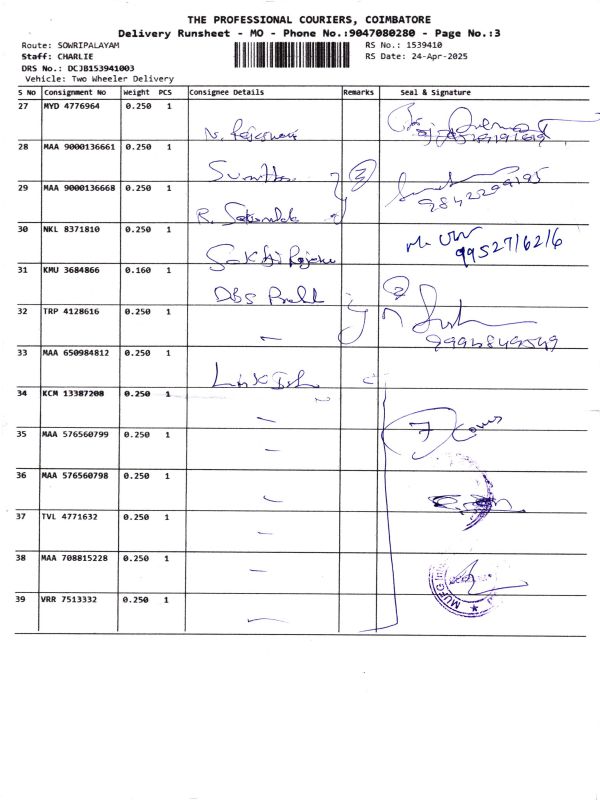 THE PROFESSIONAL COURIERS, COIMBATORE
Delivery Runsheet - MO - Phone No.:9047080280 - Page No.:3
Route: SOWRIPALAYAM
RS No.: 1539410
Staff: CHARLIE
RS Date: 24-Apr-2025
DRS No.: DCJB153941003
Vehicle: Two Wheeler Delivery
S No Consignment No Weight PCS Consignee Details Remarks Seal & Signature
27 MYD 4776964 0.250 1
28 MAA 9000136661 0.250 1
2
29 MAA 9000136668 0.250 1
9842299195
R.
30 NKL 8371810 0.250 1
9952716216
31 KMU 3684866 0.160 1
DBS
2
32 TRP 4128616 0.250 1
33 MAA 650984812 0.250 1
34 KCM 13387208 0.250 1
7
35 MAA 576560799 0.250 1
36 MAA 576560798 0.250 1
37 TVL 4771632 0.250 1
38 MAA 708815228 0.250 1
MUFG
39 VRR 7513332 0.250 1